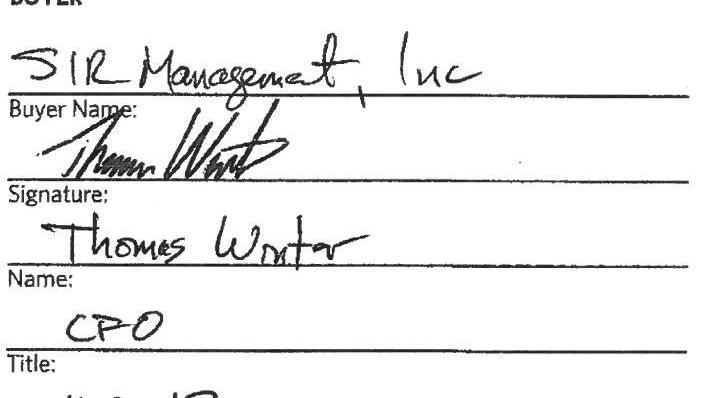 BUYER
SIR Management, Inc
Buyer Name:
Thomas Winter
Signature:
Thomas Winter
Name:
CFO
Title: